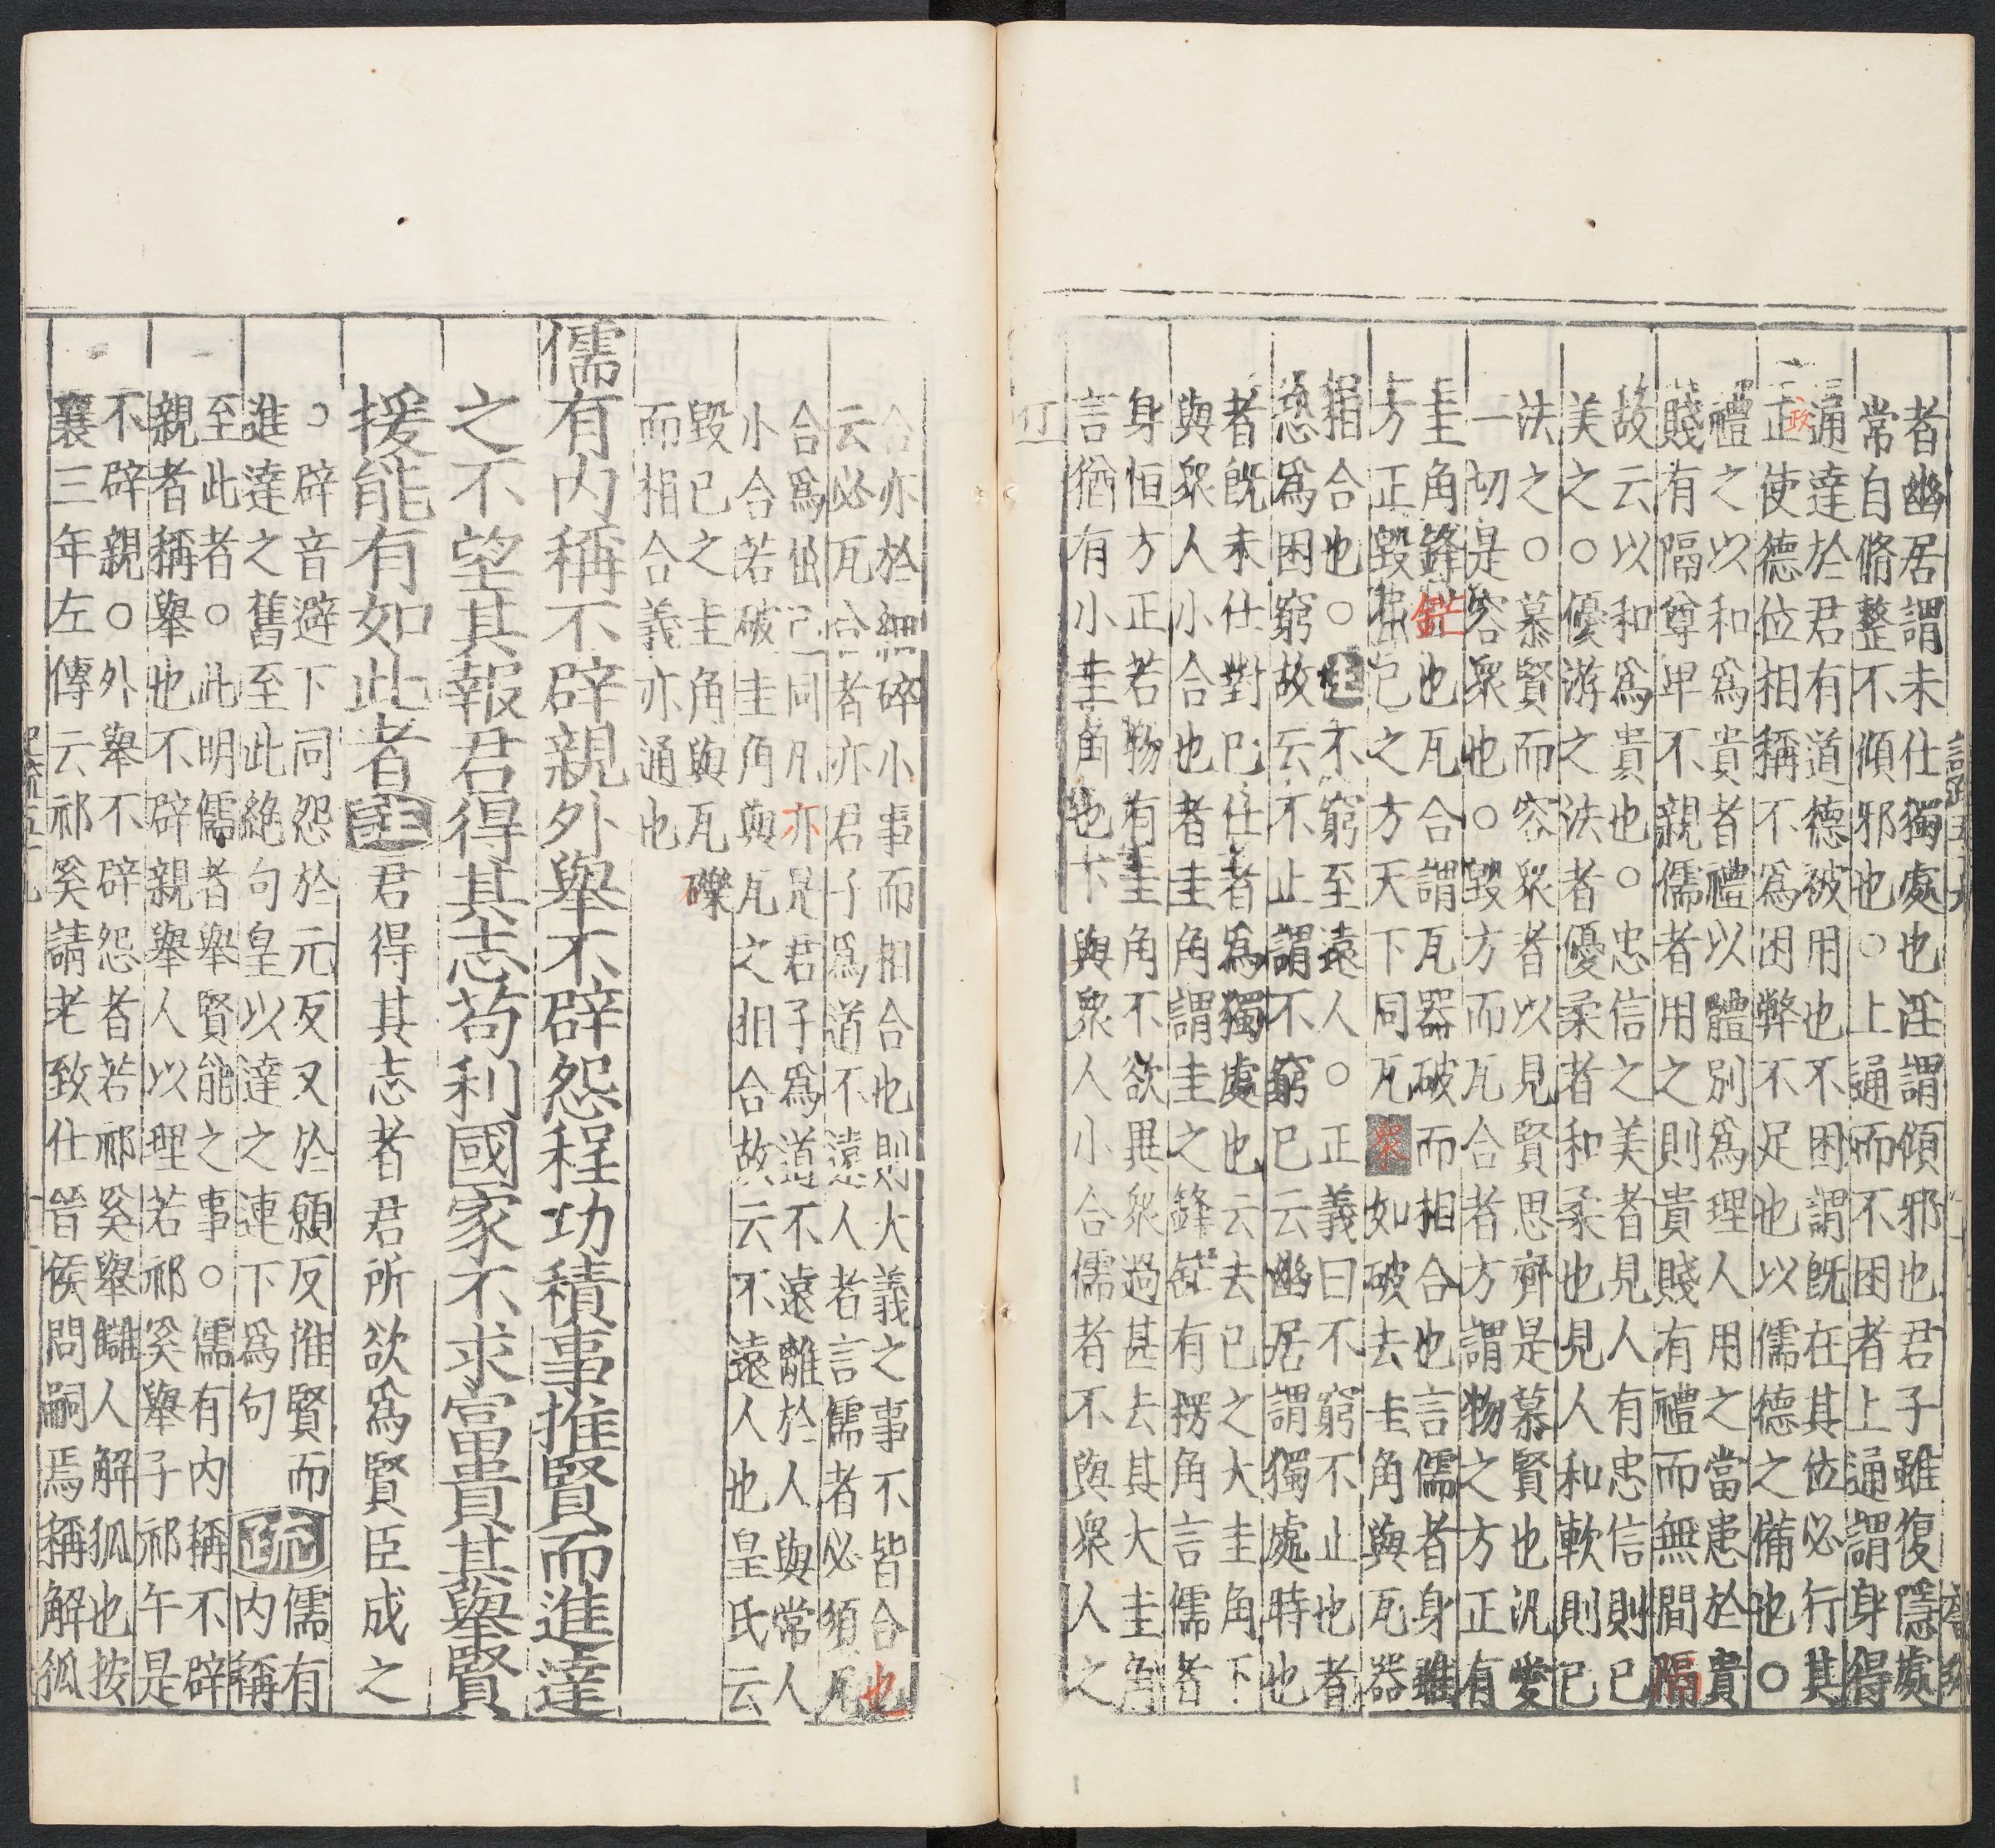 者幽居謂未仕獨處也淫謂傾邪也君子雖復隱處
常自脩整不傾邪也○上通而不困者上通謂身得
通達於君有道德被用也不困謂既在其位必行其
正使德位相稱不爲困弊不足也以儒德之備也○
政
禮之以和爲貴者禮以體別爲理人用之當患於貴
賤有隔尊卑不親儒者用之則貴賤有禮而無間隔
故云以和爲貴也○忠信之美者見人有忠信則已
美之○優游之法者優柔者和柔也見人和軟則已
法之○慕賢而容衆者以見賢思齊是慕賢也汎愛
一切是容衆也○毀方而瓦合者方謂物之方正有
圭角鋒鋩也瓦合謂瓦器破而相合也言儒者身雖
方正毀屈已之方天下同瓦衆如破去圭角與瓦器
相合也○不窮至遠人○正義曰不窮不止也者
恐爲困窮故云不止謂不窮已云幽居謂獨處時也
者既未仕對已仕者爲獨處也云去已之大圭角下
與衆人小合也者圭角謂圭之鋒鋩有楞角言儒者
身恒方正若物有圭角不欲異衆過甚去其大圭角
言猶有小圭角也下與衆人小合儒者不與衆人之
合亦於細碎小事而相合也則大義之事不皆合也
云必瓦合者亦君子爲道不遠人者言儒者必須瓦
合爲同凡亦是君子爲道不遠離於人與常人
小合若破圭角與瓦之相合故云不遠人也皇氏云
毀已之圭角與瓦礫
而相合義亦通也
儒有内稱不辟親外舉不辟怨程功積事推賢而進達
之不望其報君得其志苟利國家不求富貴其舉賢
援能有如此者註君得其志者君所欲爲賢臣成之
○辟音避下同怨於元反又於願反推賢而
進達之舊至此絶句皇以達之連下爲句疏儒有内稱
至此者○此明儒者舉賢能之事○儒有内稱不辟
親者稱舉也不辟親舉人以理若祁奚舉子祁午是
不辟親○外舉不辟怨者若祁奚舉讎人解狐也按
襄三年左傳云祁奚請老致仕晉侯問嗣焉稱解狐